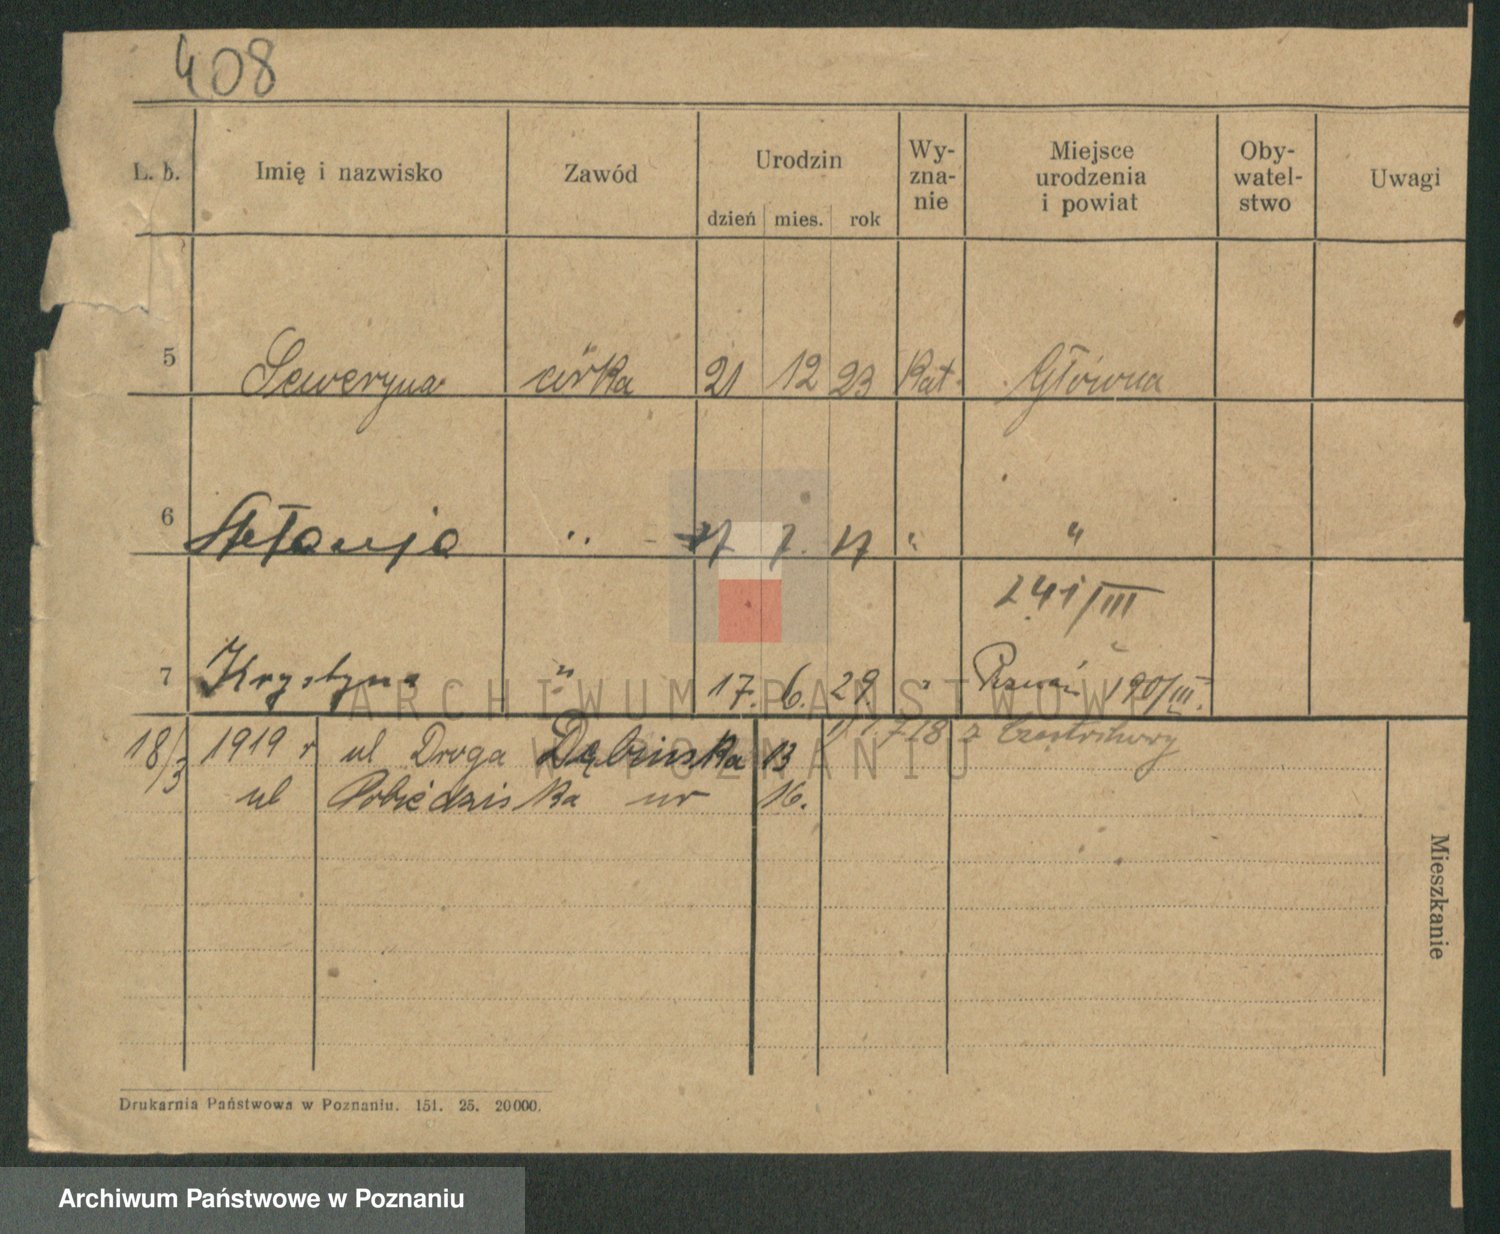 408
L. b. Imię i nazwisko Zawód Urodzin dzień mies. rok Wy-zna-nie Miejsce urodzenia i powiat Oby-watel-stwo Uwagi
5 Seweryna córka 21 12 23 Kat. Główna
6 Stefanja " 7. " "
241/III
7 Krystyna " 17. 6. 29. " Poznań 190/III.
18/3 1919 r ul Droga Dębinska 13
ul Pobiedziska nr 16.
Mieszkanie
Drukarnia Państwowa w Poznaniu. 151. 25. 20000.
ARCHIWUM PAŃSTWOWE
W POZNANIU
Archiwum Państwowe w Poznaniu